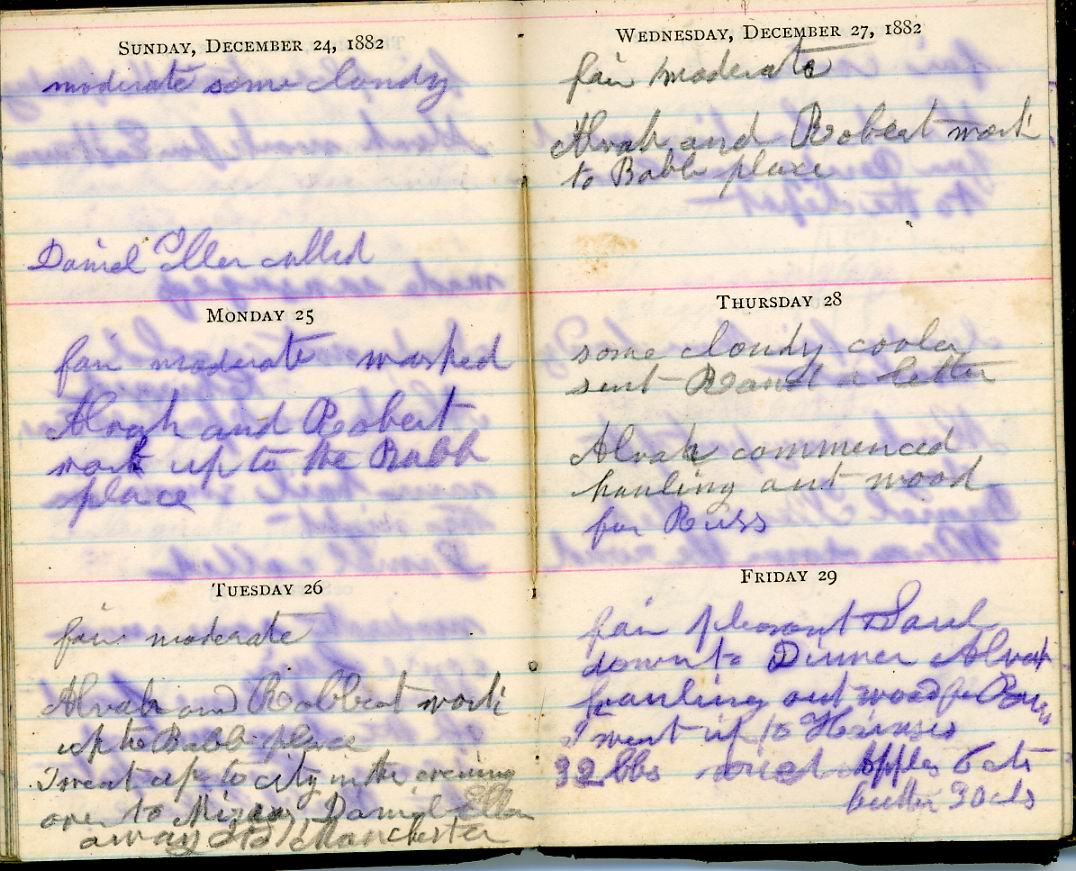 SUNDAY, DECEMBER 24, 1882
moderate some cloudy
Daniel Eller called
MONDAY 25
fair moderate washed
Alvah and Robert
work up to the Babb
place
TUESDAY 26
fair moderate
Alvah and Robbert work
up to Babb place
I went up to city in the evening
over to Daniel Eller
away to Manchester
WEDNESDAY, DECEMBER 27, 1882
fair moderate
Alvah and Robert work
to Babb place
THURSDAY 28
some cloudy cooler
sent a letter
Alvah commenced
hauling out wood
for Russ
FRIDAY 29
fair pleasant Sarah
down to Dinner Alvah
hauling out wood for Russ
I went up to
32 lbs Apples 6cts
butter 30cts